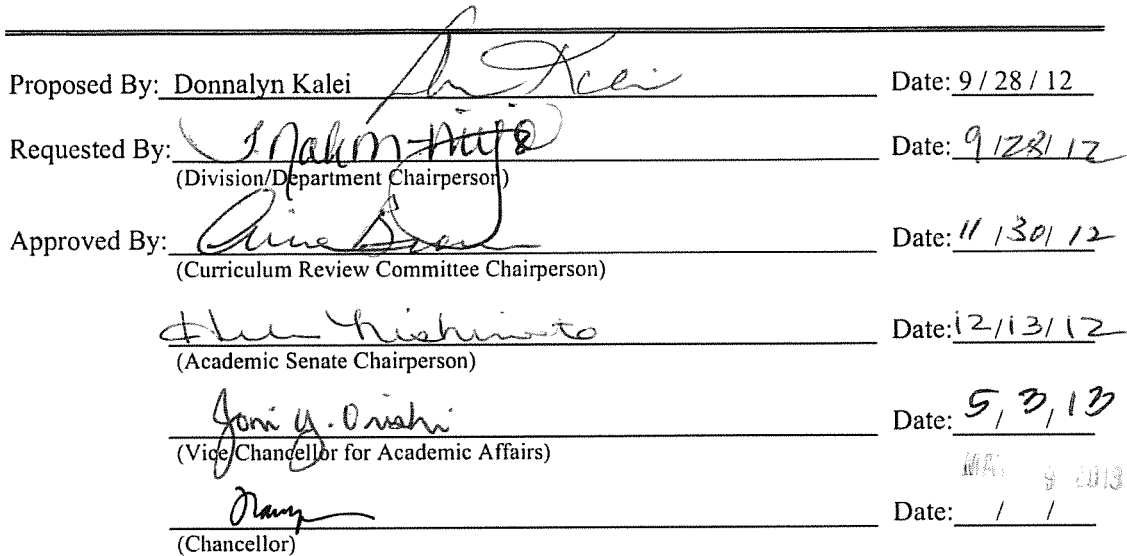 Proposed By: Donnalyn Kalei Date: 9 / 28 / 12
Requested By: Date: 9 / 28 / 12
(Division/Department Chairperson)
Approved By: Date: 11 / 30 / 12
(Curriculum Review Committee Chairperson)
Date: 12 / 13 / 12
(Academic Senate Chairperson)
Joni Y. Onishi Date: 5 / 3 / 13
(Vice Chancellor for Academic Affairs)
9 2013
Date: / /
(Chancellor)